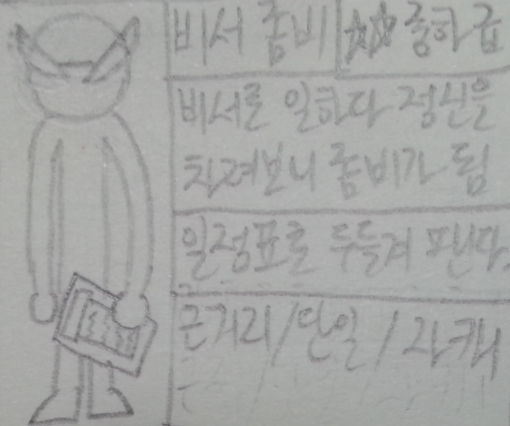 비서 좀비 ☆☆ 중하급
비서로 일하다 정신을
차려보니 좀비가 됨
일정표로 두들겨 팬다.
근거리/단일/자캐